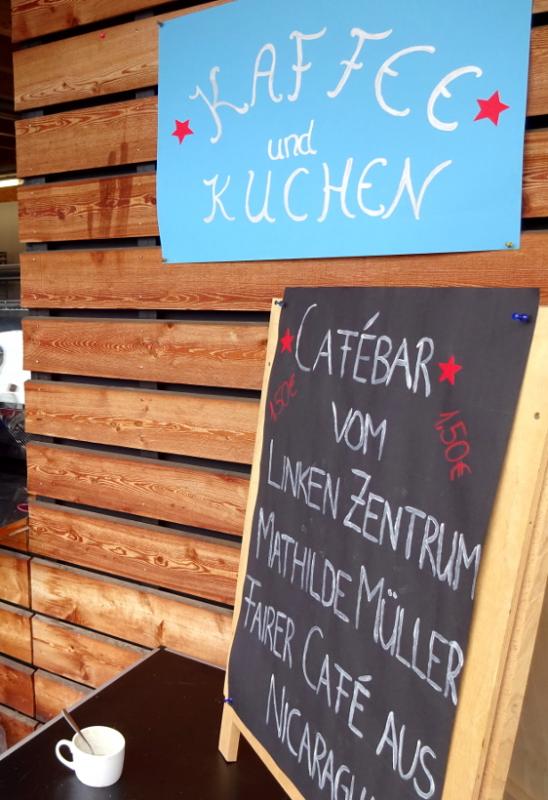 KAFFEE
und
KUCHEN
CAFÉBAR
1,50€
1,50€
VOM
LINKEN ZENTRUM
MATHILDE MÜLLER
FAIRER CAFÉ AUS